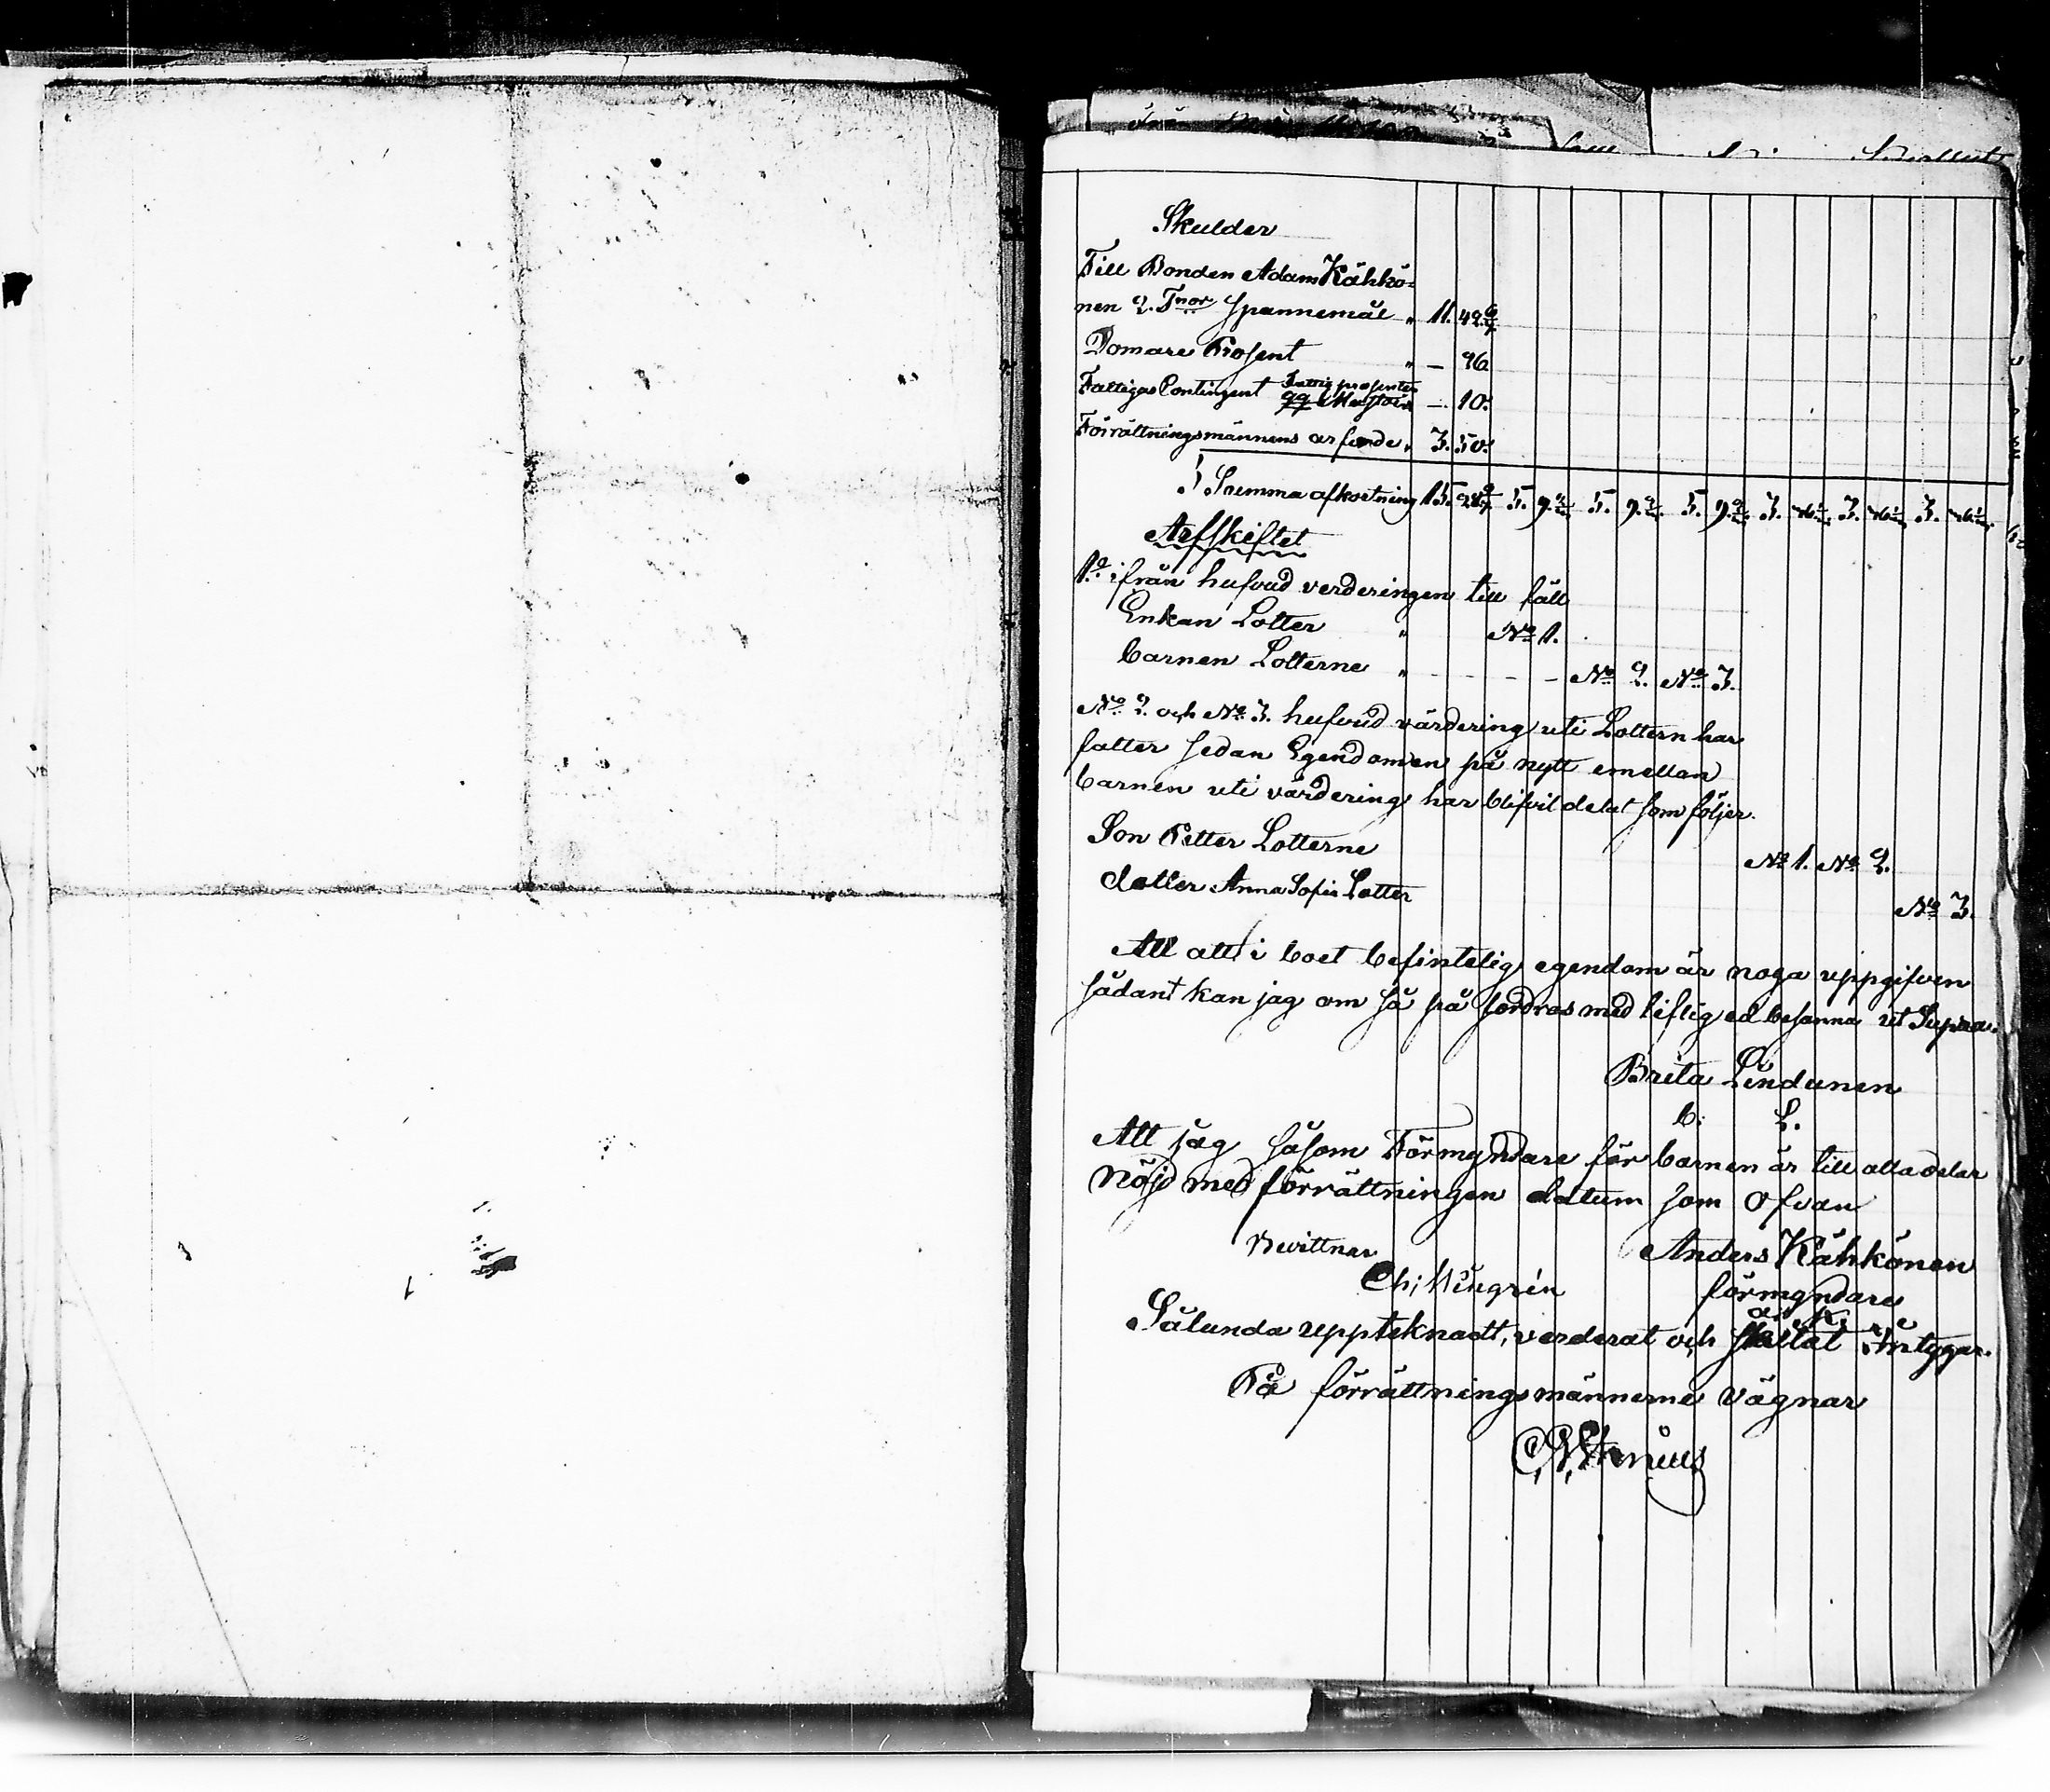 Skulder
Till Bonden Adam Kähkö=
nen 2. Tnor Spannemål " 11. 42 6/7
Domare Prosent " — 96
Fattigas Contingent Fattig prosenten — 10.
Förrättningsmännens arfvode " 3. 50.
Summa afkortning 15. 5. 9. 5. 9. 5. 9. 3. 3. 3.
Arfskiftet
1:o ifrån hufvud verderingen till fäll
Enkan Lotter " No 1.
barnen Lotterne " - - - - No 2. No 3.
No 2. och No 3. hufvud värdering uti Lottern har
fatter sedan Egendomen på nytt emellan
barnen uti värdering har blifvit delat som följer.
Son Petter Lotterne No 1. No 2.
dotter Anna Sofia Lotter No 3.
All att i boet befintelig egendom är noga uppgifven
sådant kan jag om så på fordras med liflig ed besanna ut Supra.
Brita Lindunen
b. L.
Att jag såsom Förmyndare för barnen är till alla delar
Nöjd med förrättningen datum som ofvan
Bevittnar Anders Kähkönen
förmyndare
a. K.
Sålunda uppteknadt, verderat och skiftat Intygar.
På förrättningsmännerne vägnar